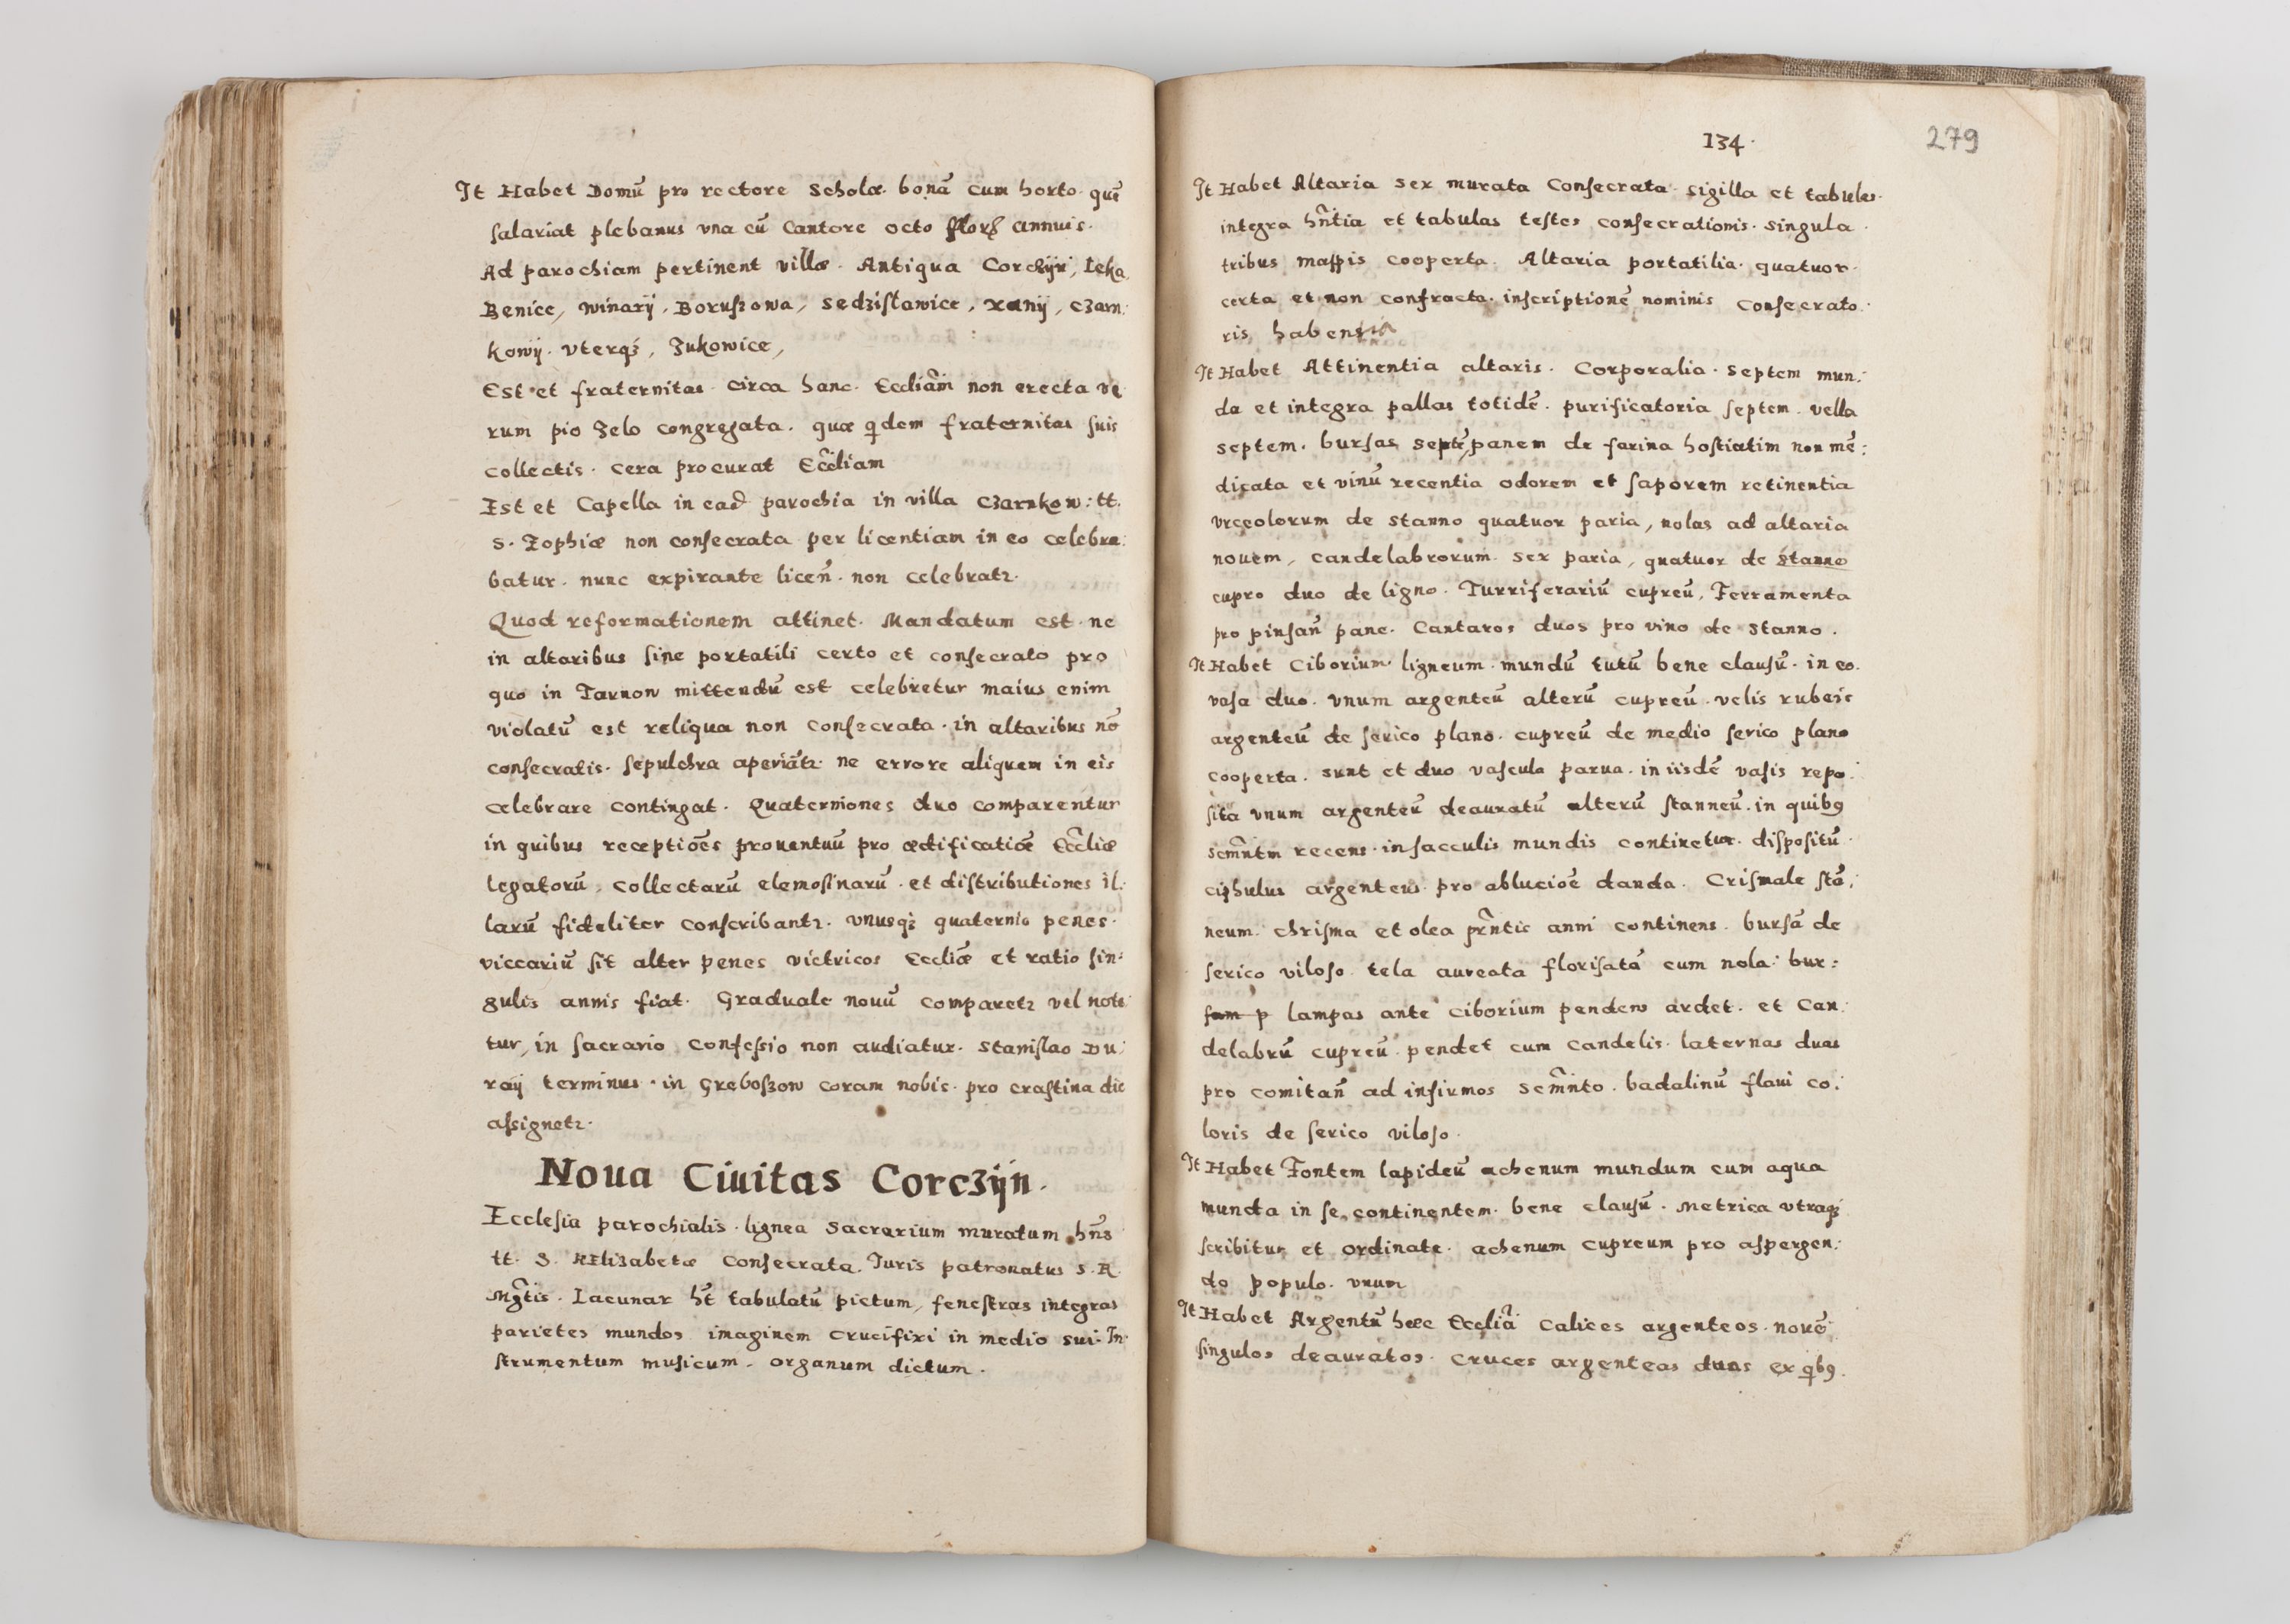 It Habet Domū pro rectore Scholæ. bonā cum horto. quē
salariat plebanus vna cū Cantore octo annuis.
Ad parochiam pertinent villæ. Antiqua Corczÿn, Ieka
Benice, winarÿ, Boruszowa, sedzisławice, ranÿ, Czar:
kowÿ. vterqȝ, Zukowice,
Est et fraternitas circa hanc. Eccliãm non erecta ve
rum pio zelo congregata. quæ qdem fraternitas suis
collectis. cera procurat Eccliam
Est et Capella in ead parochia in villa Czarnkow: tt.
S. Zophiæ non consecrata per licentiam in eo celebra:
batur. nunc expirante liceñ. non celebratr.
Quod reformationem attinet. Mandatum est ne
in altaribus sine portatili certo et consecrato pro
quo in Tarnow mittendū est celebretur maius enim
violatū est reliqua non consecrata. in altaribus nō
consecratis. sepulchra aperiãtr. ne errore aliquem in eis
celebrare contingat. Quaterniones duo comparentur
in quibus receptiões prouentuū pro ædificatiōe Eccliæ
legatorū, collectarū elemosinarū. et distributiones il:
larū fideliter conscribantr. vnusqȝ quaternio penes.
viccariū sit alter penes victricos Eccliæ et ratio sin:
gulis annis fiat. Graduale nouū comparetr vel note
tur, in sacrario confessio non audiatur. Stanislao Du:
raÿ terminus. in Greboszow coram nobis. pro crastina die
assignetr.
Noua Ciuitas Corczÿn.
Ecclesia parochialis. lignea Sacrarium muratum hñs
tt. S. Consecrata. Iuris patronatus S. R.
Mgtis. Lacunar ht tabulatū pictum, fenestras integras
parietes mundos imaginem Crucifixi in medio sui. In
strumentum musicum. organum dictum.
134.
279
It Habet Altaria sex murata Consecrata. sigilla et tabules.
integra hñtia et tabulas testes consecrationis. singula.
tribus mappis cooperta. Altaria portatilia. quatuor.
certa et non confracta. inscriptionē nominis consecrato:
ris habentia
It Habet Attinentia altaris. Corporalia. Septem mun:
da et integra pallas totidē. purificatoria septem. vella
septem. bursas septē, panem de farina hostiatim non mē:
dicata et vinū recentia odorem et saporem retinentia
vrceolorum de stanno quatuor paria, nolas ad altaria
nouem, candelabrorum. sex paria, quatuor de stanno
cupro duo de ligno. Turriferariū cupreū, Ferramenta
pro pinsañ pane. Cantaros duos pro vino de stanno.
It Habet Ciborium ligneum. mundū tutū bene clausū. in eo.
vasa duo. vnum argenteū alterū cupreū. velis rubeis
argenteū de serico plano. cupreū de medio serico plano
cooperta. sunt et duo vascula parua. in iisdē vasis repo:
sita vnum argenteū deauratū alterū stanneū. in quibꝯ
scmñtm recens. in sacculis mundis continetur. dispositū.
ciphulus argenteus pro ablucioē danda. Crismale stā:
neum. chrisma et olea prñtis anni continens. bursā de
serico viloso. tela aureata florisatā cum nola. bur:
sam p lampas ante Ciborium pendens ardet. et Can:
delabrū cupreū. pendet cum candelis. laternas duas
pro comitañ ad infirmos scmñto. badalinū flaui co:
loris de serico viloso.
It Habet Fontem lapideū achenum mundum cum aqua
muncta in se continentem. bene clausū. Metrica vtraqȝ
scribitur et ordinate. achenum cupreum pro aspergen:
do populo. vnum
It Habet Argentū hæc Ecclia Calices argenteos. nouē
singulos deauratos. cruces argenteas duas ex qbꝯ.